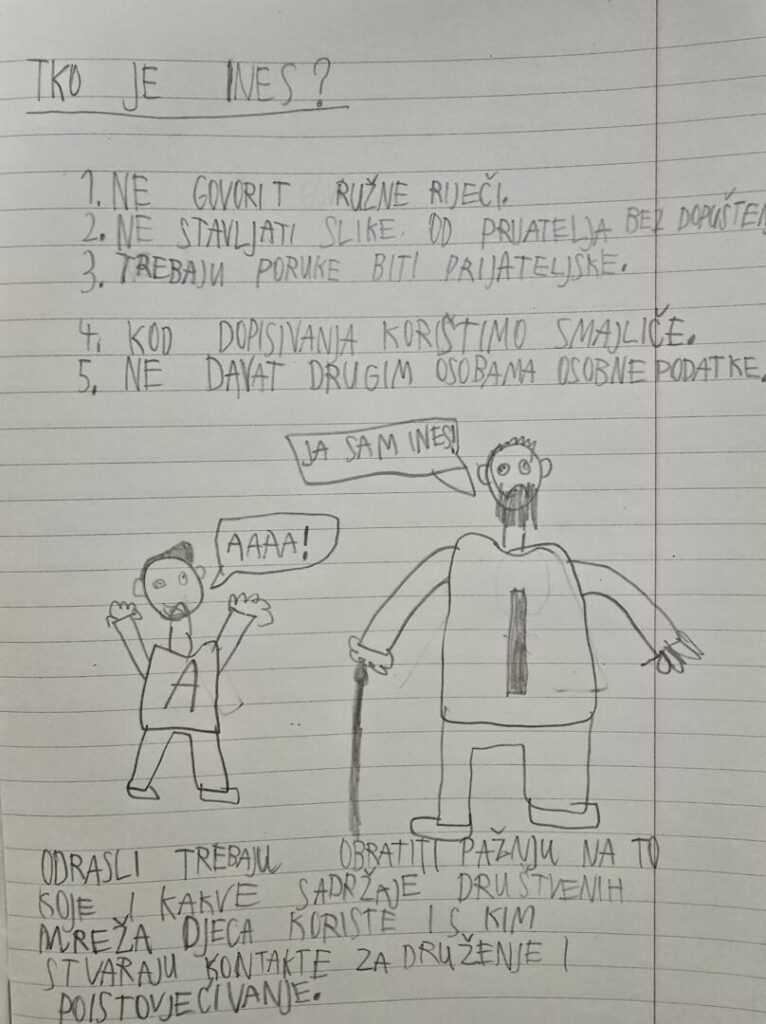 TKO JE INES?
1. NE GOVORIT RUŽNE RIJEČI.
2. NE STAVLJATI SLIKE OD PRIJATELJA BEZ DOPUŠTEN
3. TREBAJU PORUKE BITI PRIJATELJSKE.
4. KOD DOPISIVANJA KORIŠTIMO SMAJLIČE.
5. NE DAVAT DRUGIM OSOBAMA OSOBNE PODATKE.
JA SAM INES!
AAAA!
A
I
ODRASLI TREBAJU OBRATITI PAŽNJU NA TO
KOJE I KAKVE SADRŽAJE DRUŠTVENIH
MREŽA DJECA KORISTE I S KIM
STVARAJU KONTAKTE ZA DRUŽENJE I
POISTOVJEĆIVANJE.